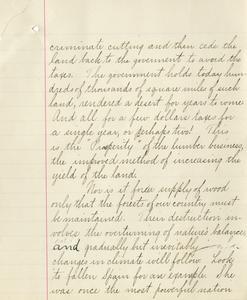 criminate cutting and then cede the
land back to the goverment to avoid the
taxes. The government holds today hun-
dreds of thousands of square miles of such
land, rendered a desert for years to come.
And all for a few dollars taxes for
a single year, or perhaps two! This
is the "Prosperity" of the lumber business,
the improved method of increasing the
yield of the land.
Nor is it for a supply of wood
only that the forest of our country must
be maintained. Their destruction in-
volves the overturning of nature's balances,
and gradually but inevitably
changes in climate will follow. Look
to fallen Spain for an example. She
was once the most powerful nation